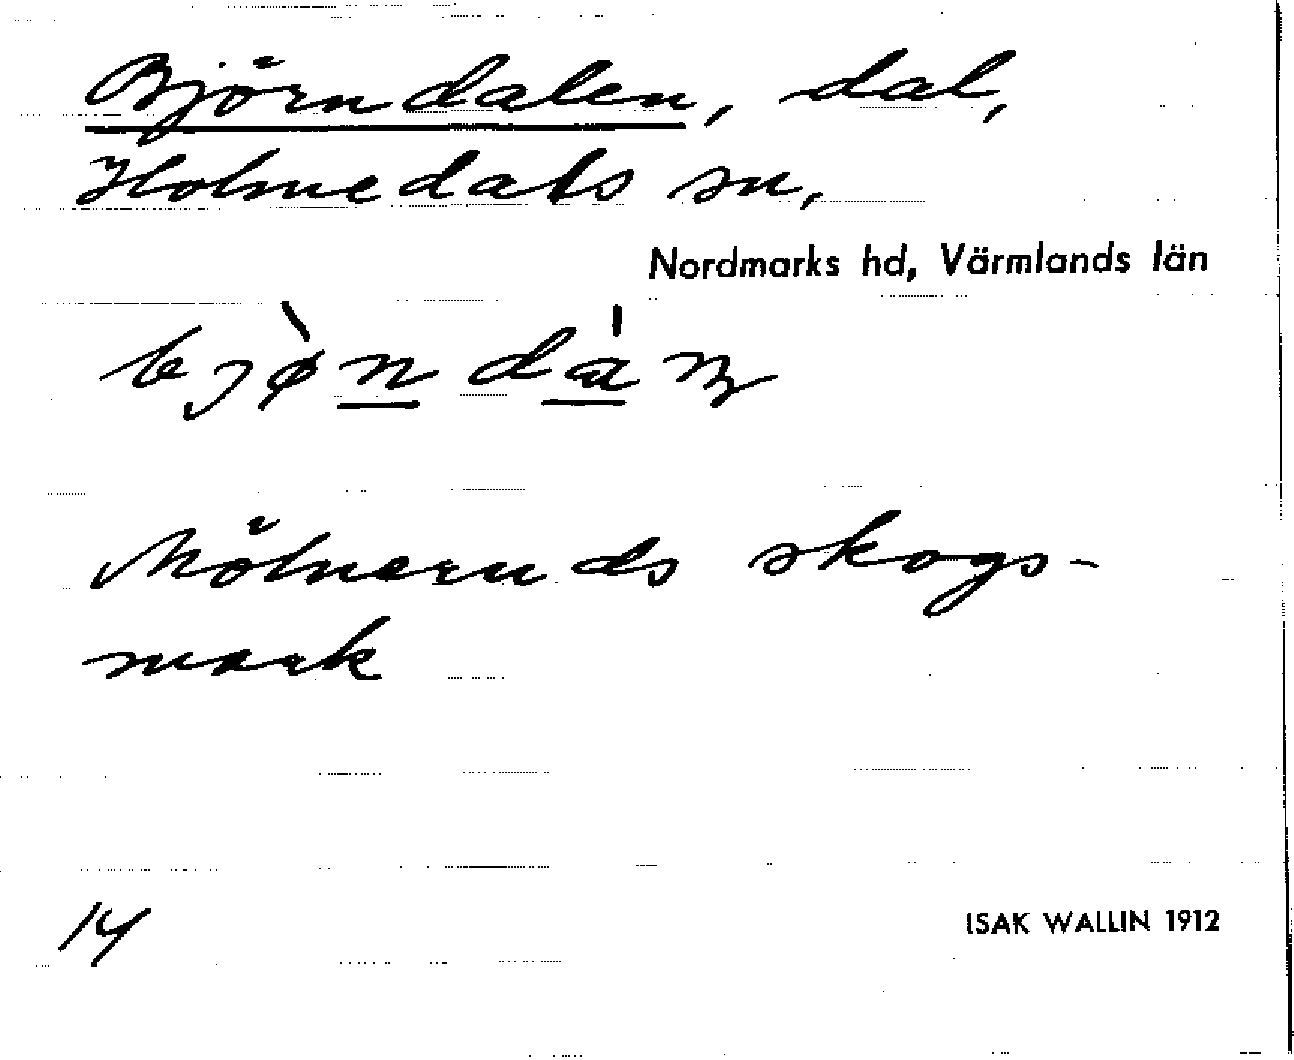 Björndalen, dal,
Holmedals sn,
Nordmarks hd, Värmlands län
Mölnerуds skogs-
mark
14
ISAK WALLIN 1912